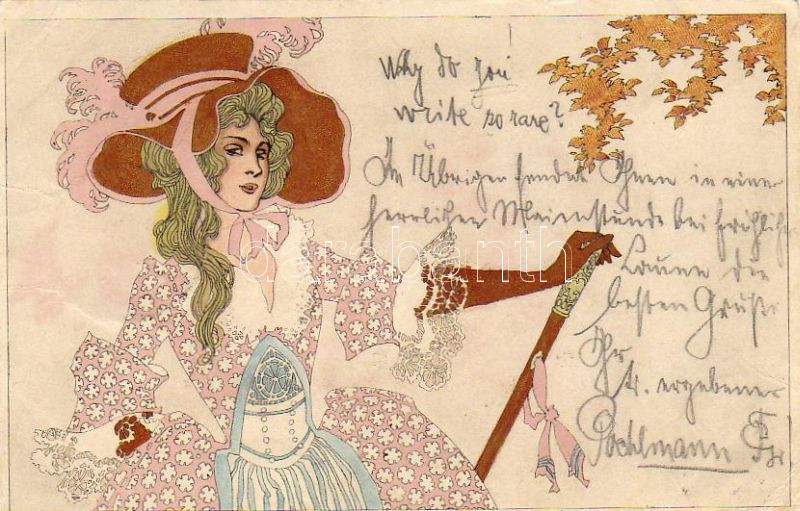 Why do you
write so rare?
Im Übrigen sendet Ihnen in einer
herrlichen Maienstunde bei fröhlicher
Laune die
besten Grüße
Ihr
tr. ergebener
darabanth